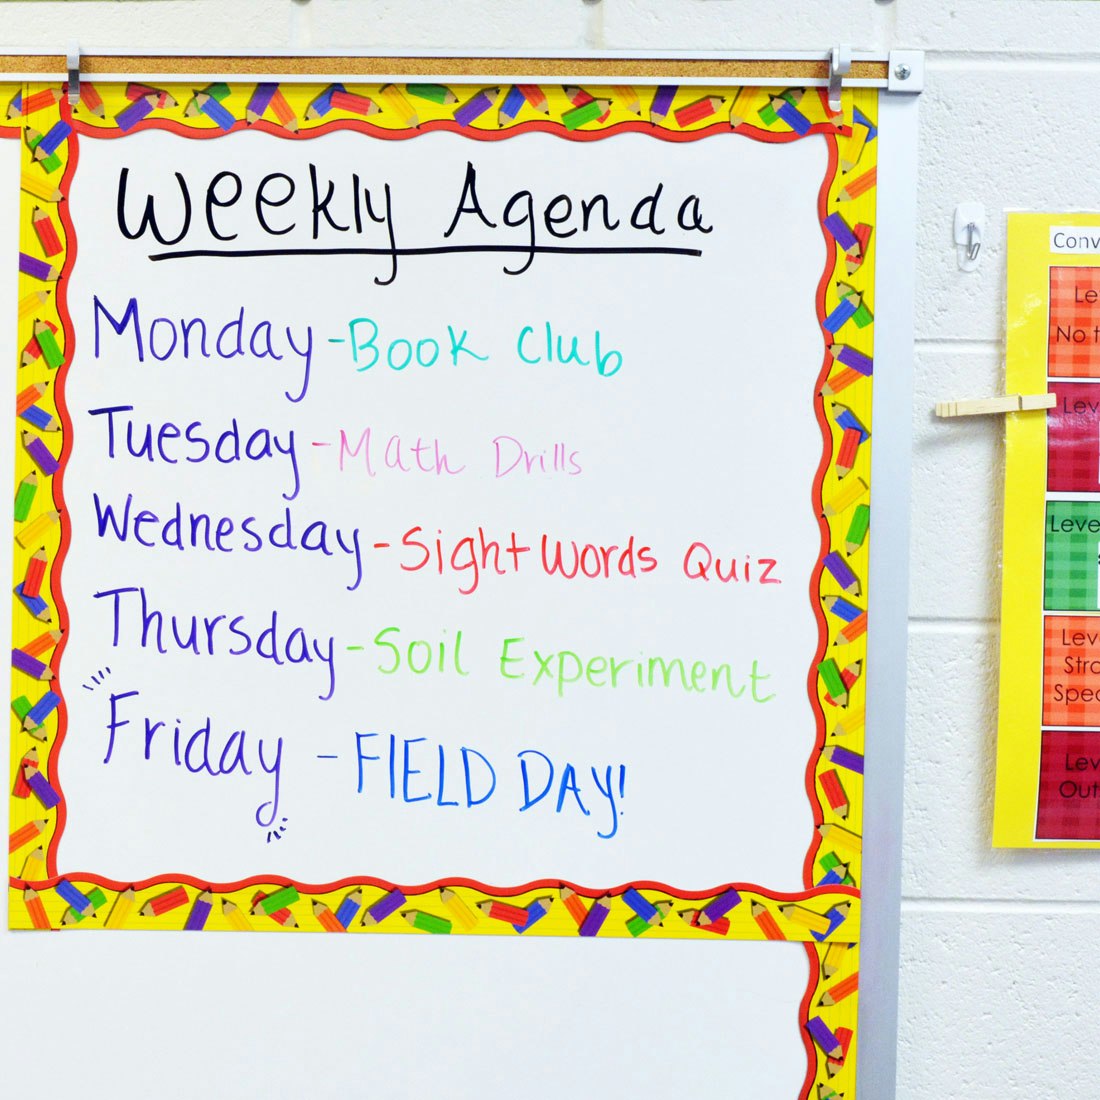 Weekly Agenda
Monday - Book Club
Tuesday - Math Drills
Wednesday - Sight Words Quiz
Thursday - Soil Experiment
Friday - FIELD DAY!
Conv
Le
No t
Lev
Leve
Lev
Stro
Spec
Lev
Out